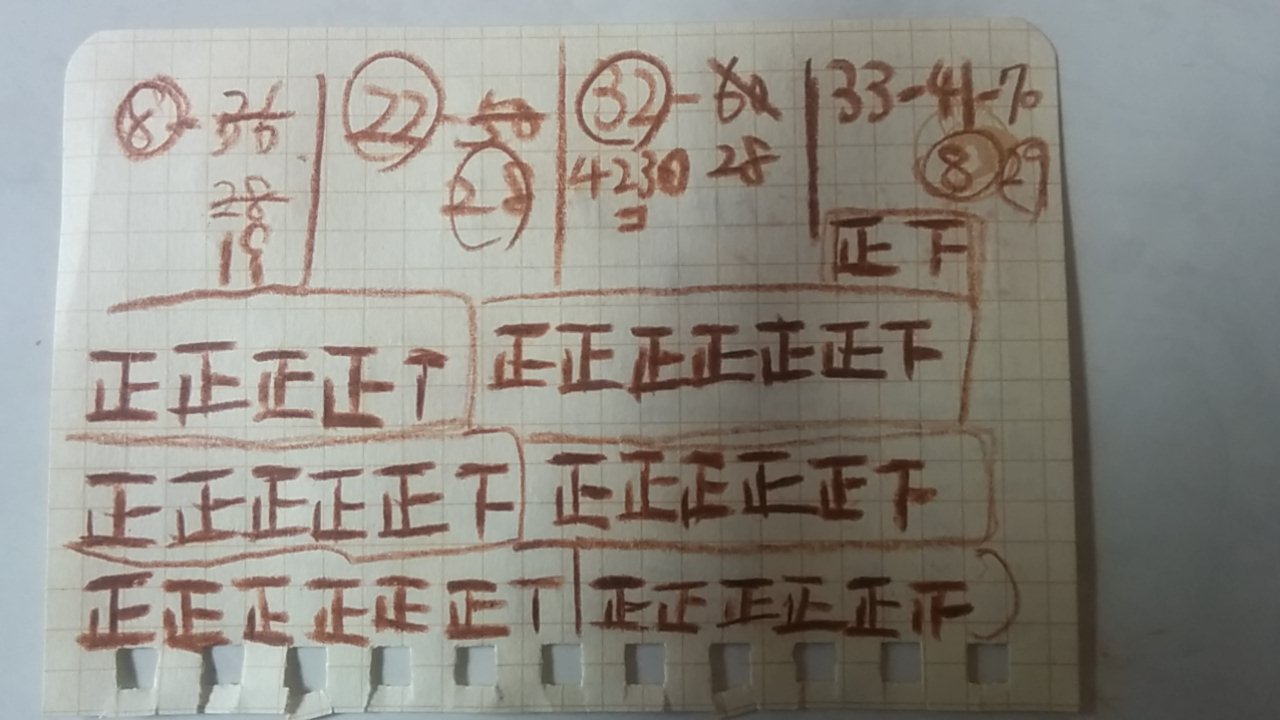 8-36 22-50 32-60 33-41-70
28 28 4230 28 8 29
19
正下
正正正正丅 正正正正正正下
正正正正正下 正正正正正下
正正正正正正丅 正正正正正正